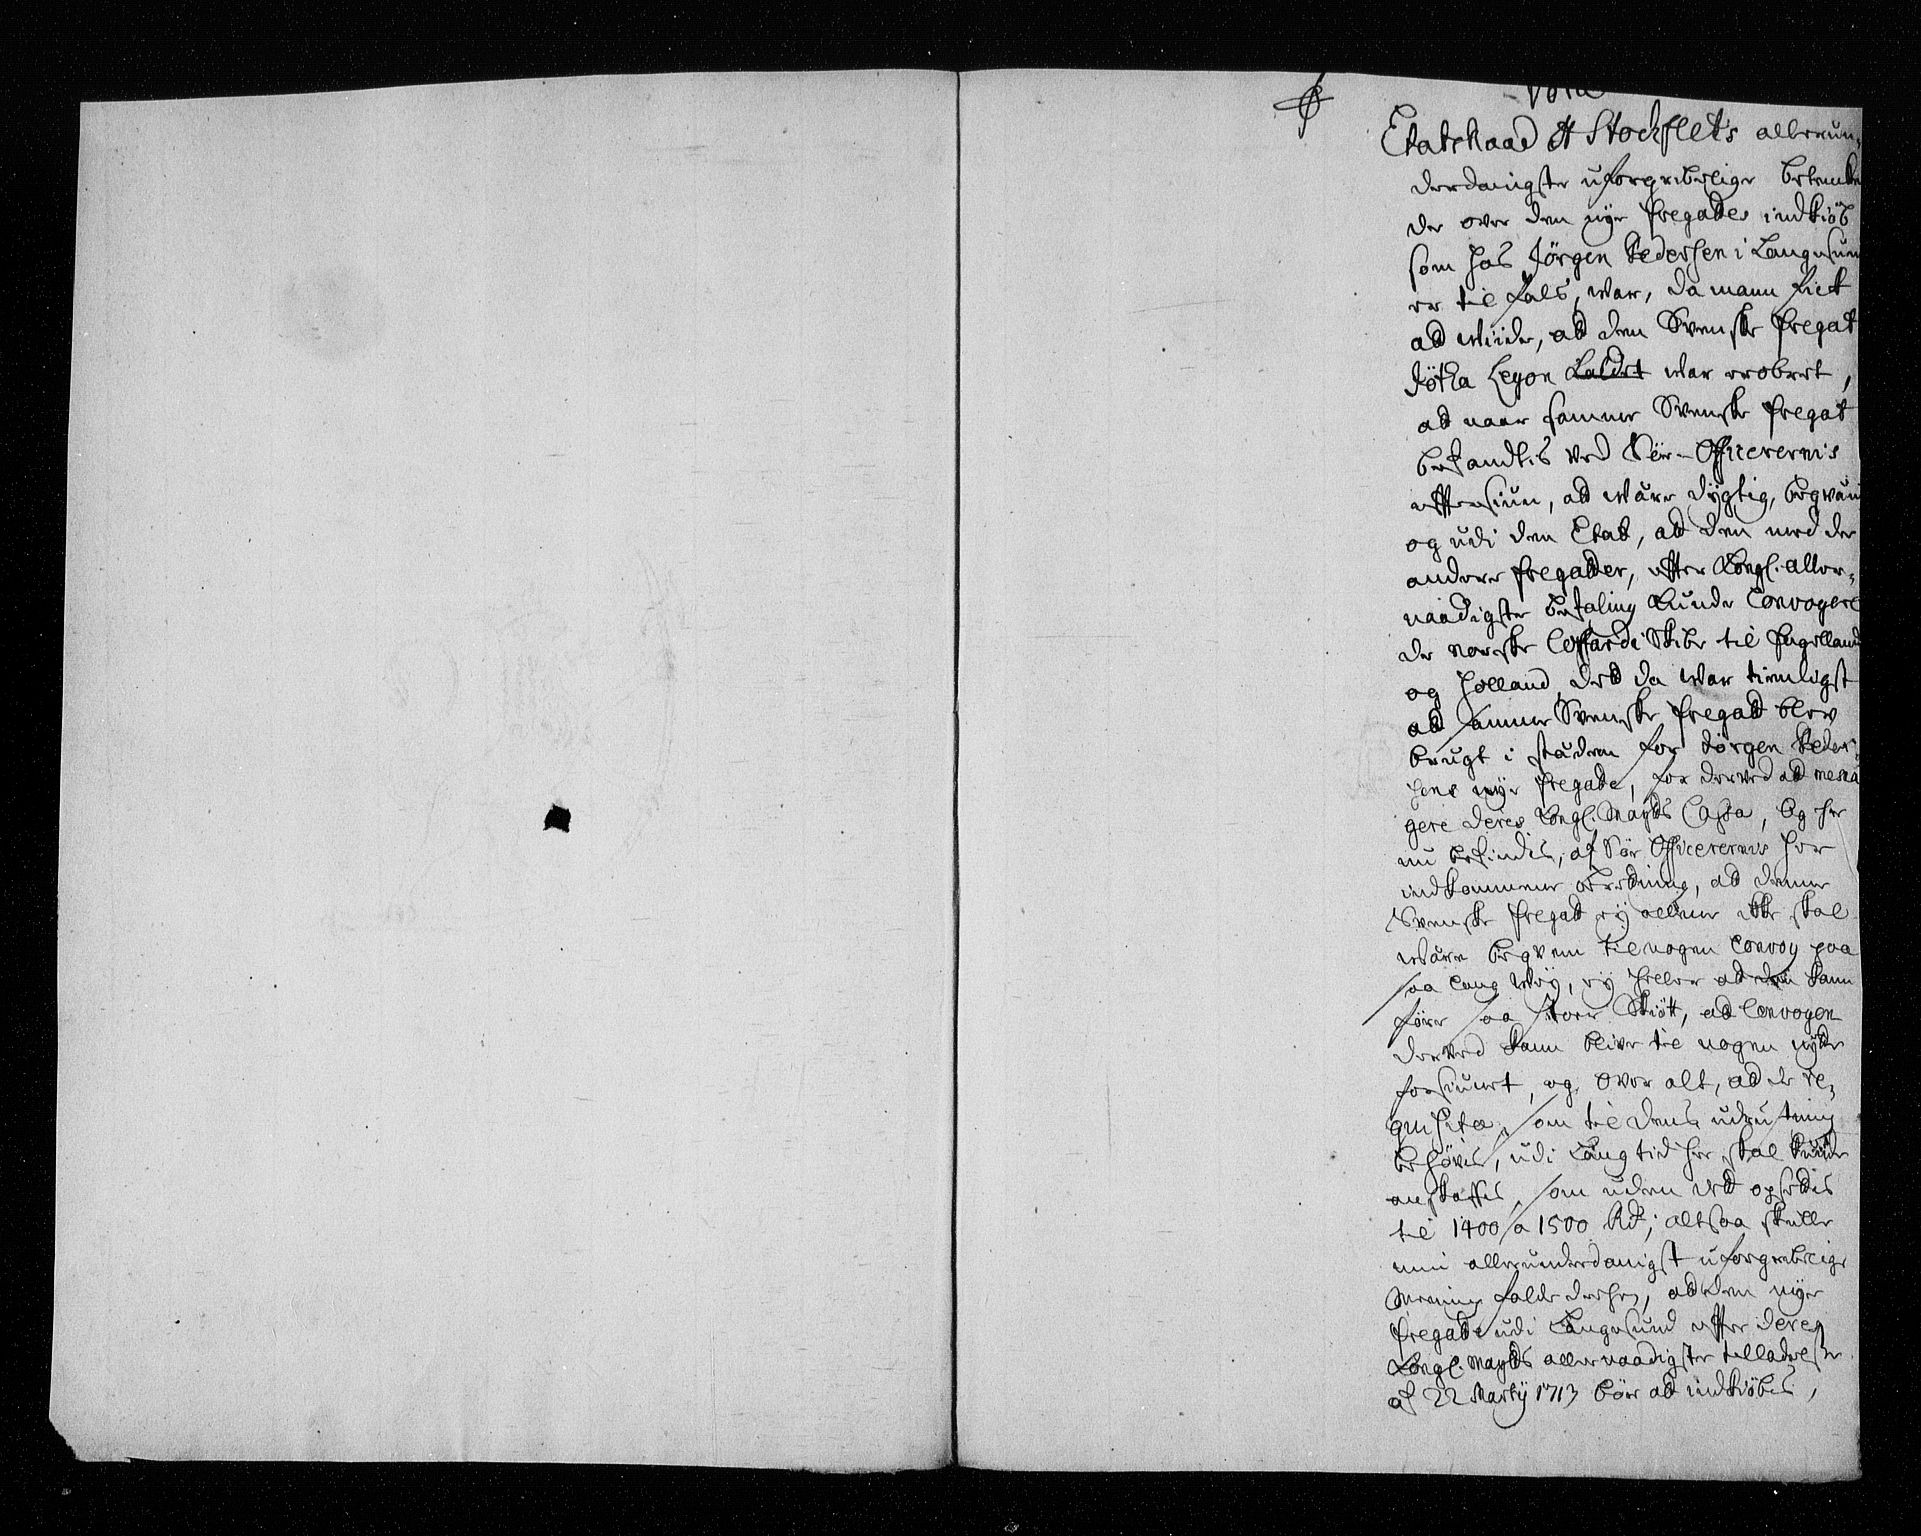 Etatsraad H Stockflets allerun-
derdanigste uforgribelige betenken
de over den nye fregades indkiøb
som hos Jørgen Pedersen i Langesund
er til fals, war, da mann fick
ad wiide, ad den Svenske fregat
war erobret,
ad naar samme Svenske fregat
befandtis ved Søe-Officerernis
ad være dygtig, beqvem
og udi den Etat, ad den med de
andere fregadder, efter Kongl. aller-
naadigste befaling kunde Convoyere
de norske Coffardi Skibe til Engelland
og Holland, det da war tienligst
ad samme Svenske fregatt blev
brugt i stæden for Jørgen Peder-
sens nye fregade, for derved ad mesna
gere deres Kongl. Mayts Cassa, Og her
nu befindis, af Søe Officerernis her
indkommene beretning, ad denne
Svenske fregat ey allene ikke skal
være beqvem til nogen Convoy paa
saa lang Wey, ey heller ad den kann
føre saa stoer Skiøtt, ad Convoyen
derved kann blive til nogen nytte
forsiunet, og over alt, ad de re-
qvisita, som til dens udrustning
behøves, udi lang tid her skal kunde
anskaffis, som uden det opsettis
til 1400 a 1500 Rdr; altsaa skulle
min allerunderdanigst uforgribelige
Meening falde derhen, ad den nye
fregade udi Langesund efter deres
Kongl. Mayts allernaadigste tilladelse
af 22 Marty 1713 bør ad indkiøbes,